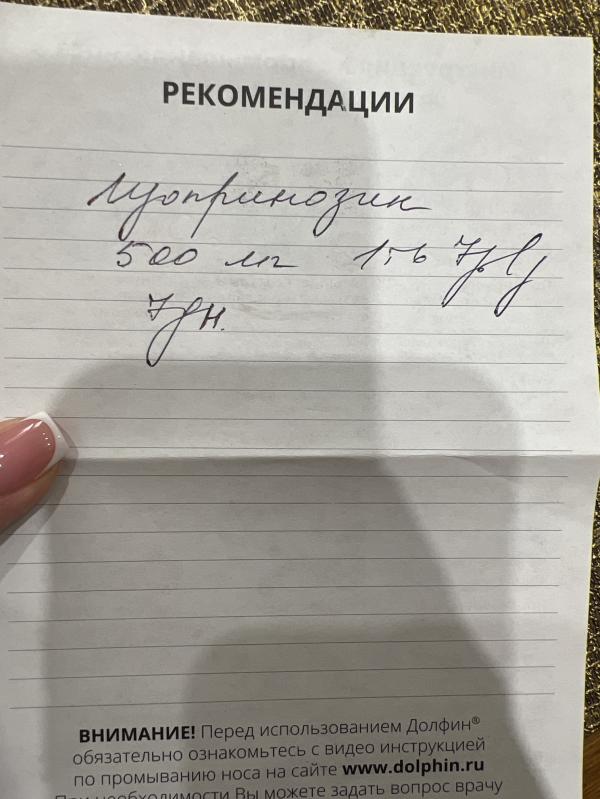 РЕКОМЕНДАЦИИ
Изопринозин
500 мг 1тб
7дн.
ВНИМАНИЕ! Перед использованием Долфин®
обязательно ознакомьтесь с видео инструкцией
по промыванию носа на сайте www.dolphin.ru
При необходимости Вы можете задать вопрос врачу